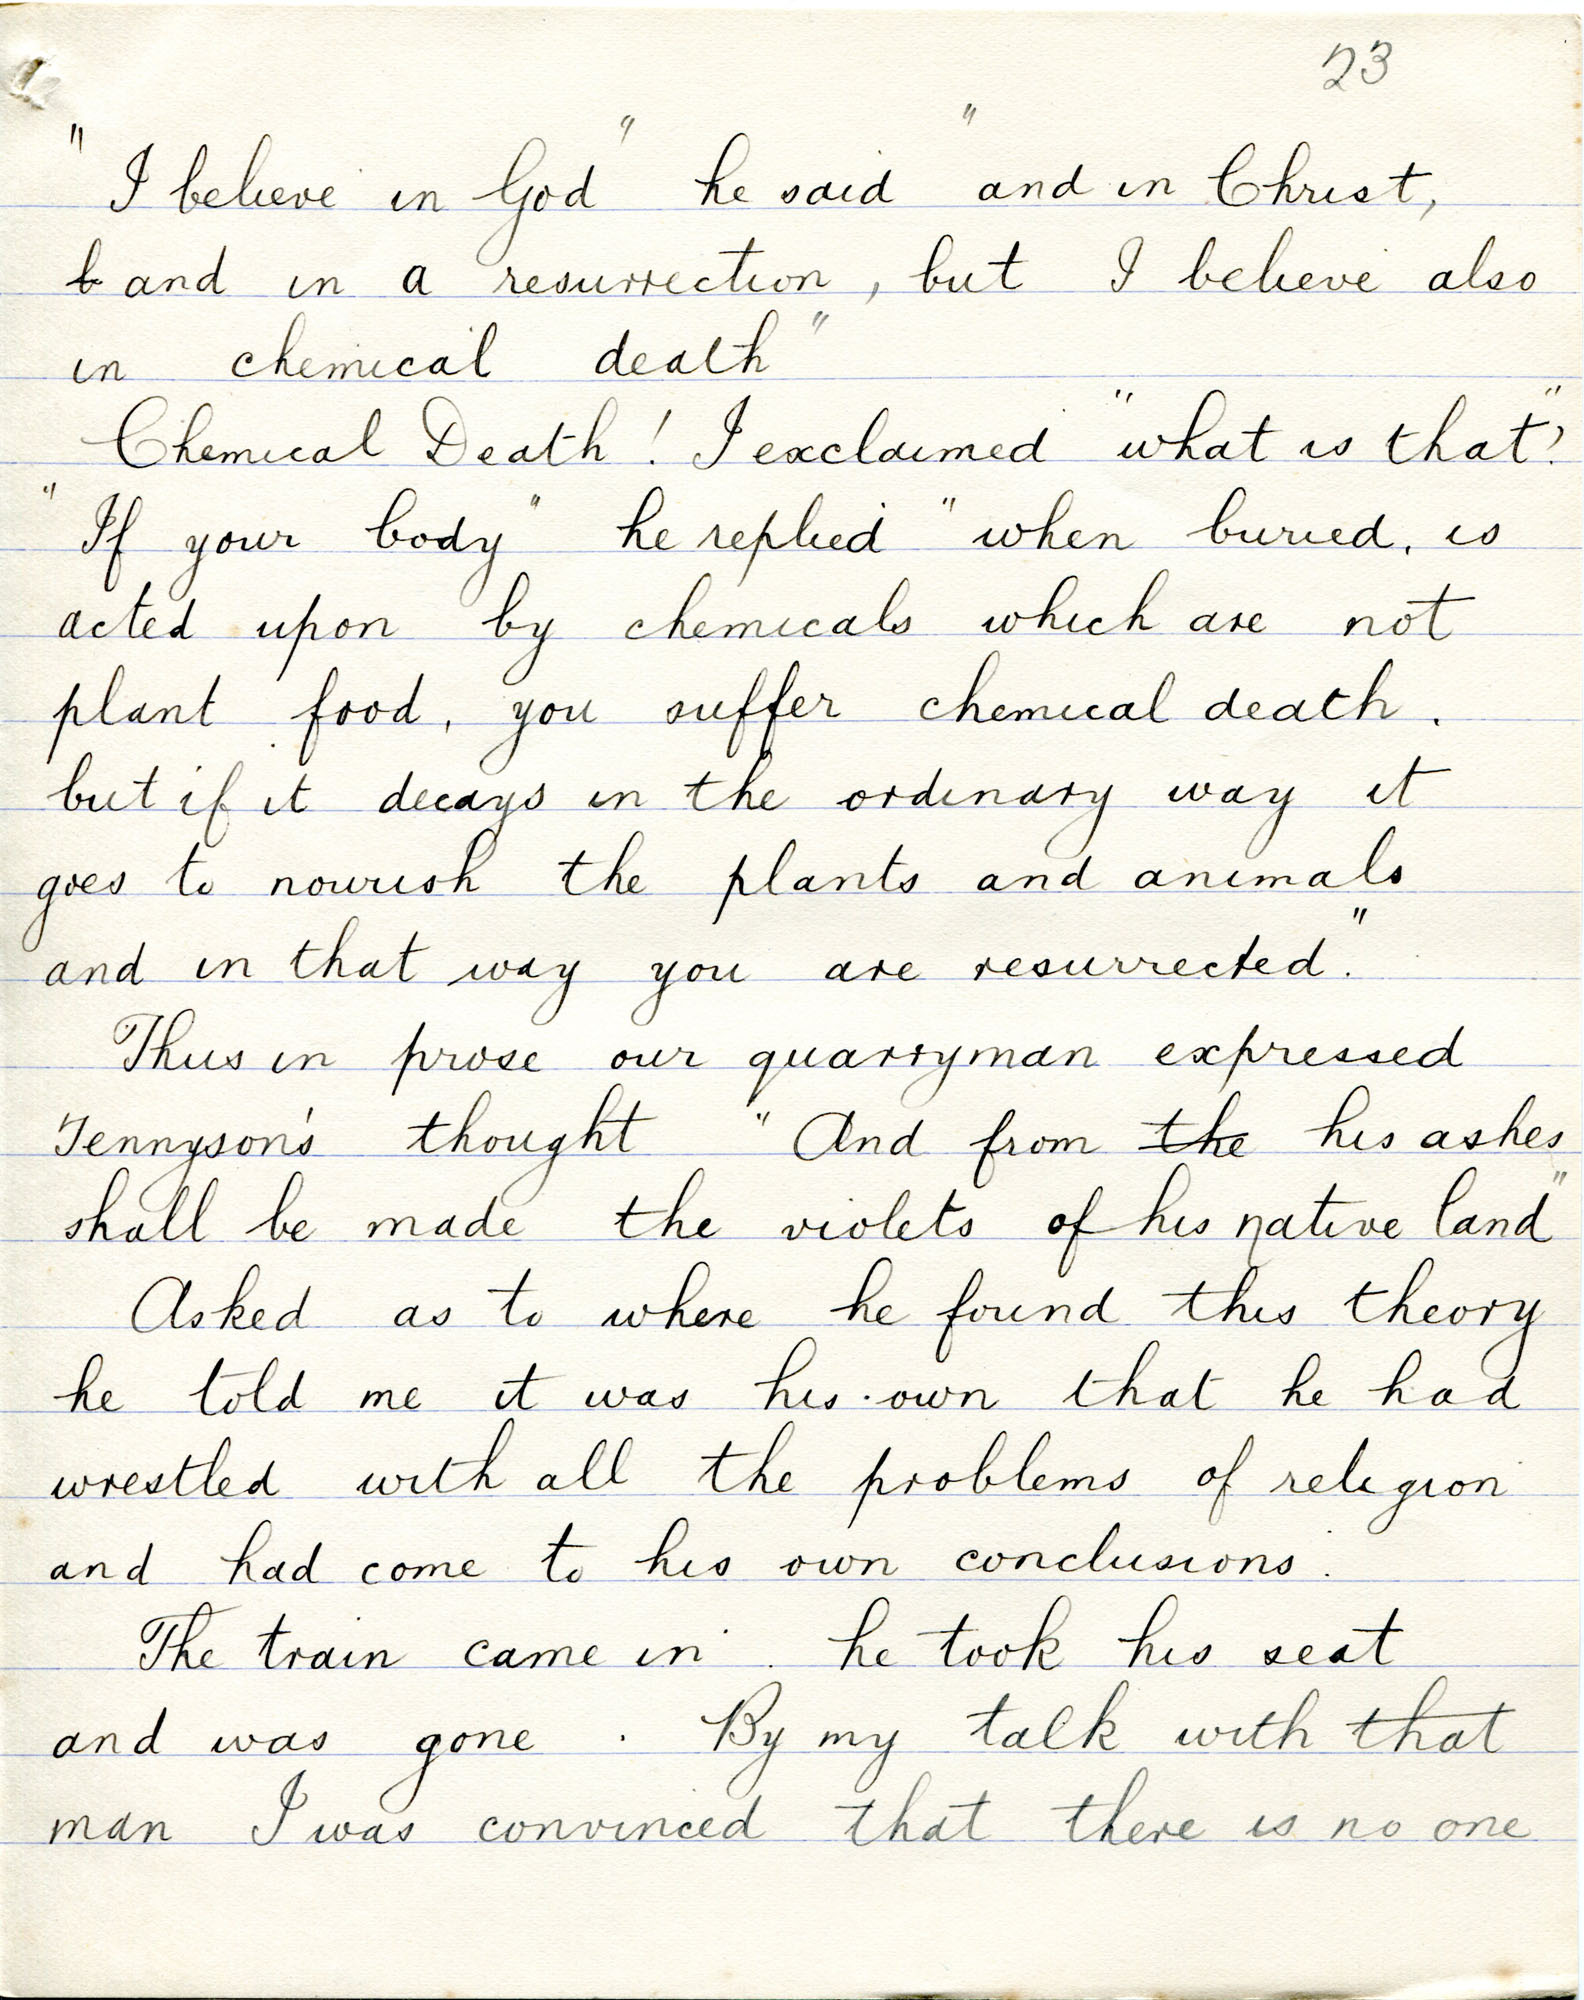 23
"I believe in God" he said "and in Christ,
b and in a resurrection, but I believe also
in chemical death"
Chemical Death! I exclaimed "what is that"?
"If your body" he replied "when buried, is
acted upon by chemicals which are not
plant food, you suffer chemical death.
but if it decays in the ordinary way it
goes to nourish the plants and animals
and in that way you are resurrected."
Thus in prose our quarryman expressed
Tennyson's thought "And from the his ashes
shall be made the violets of his native land"
Asked as to where he found this theory
he told me it was his own that he had
wrestled with all the problems of religion
and had come to his own conclusions.
The train came in. he took his seat
and was gone. By my talk with that
man I was convinced that there is no one